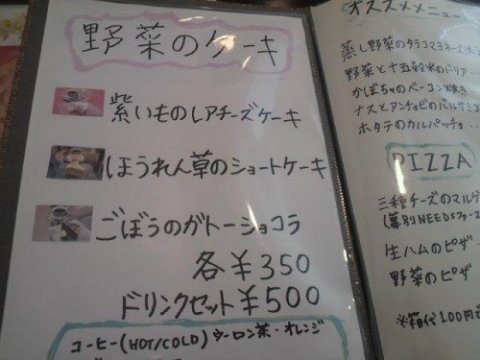 野菜のケーキ
紫いものレアチーズケーキ
ほうれん草のショートケーキ
ごぼうのガトーショコラ
各¥350
ドリンクセット¥500
コーヒー(HOT/COLD) ウーロン茶・オレンジ
オススメメニュー
蒸し野菜のタラコマヨネーズ
野菜と十五穀米のドリア
かぼちゃのベーコン焼き
ナスとアンチョビのバルサミコ
ホタテのカルパッチョ
PIZZA
三種チーズのマルゲ
生ハムのピザ
野菜のピザ
※箱代100円